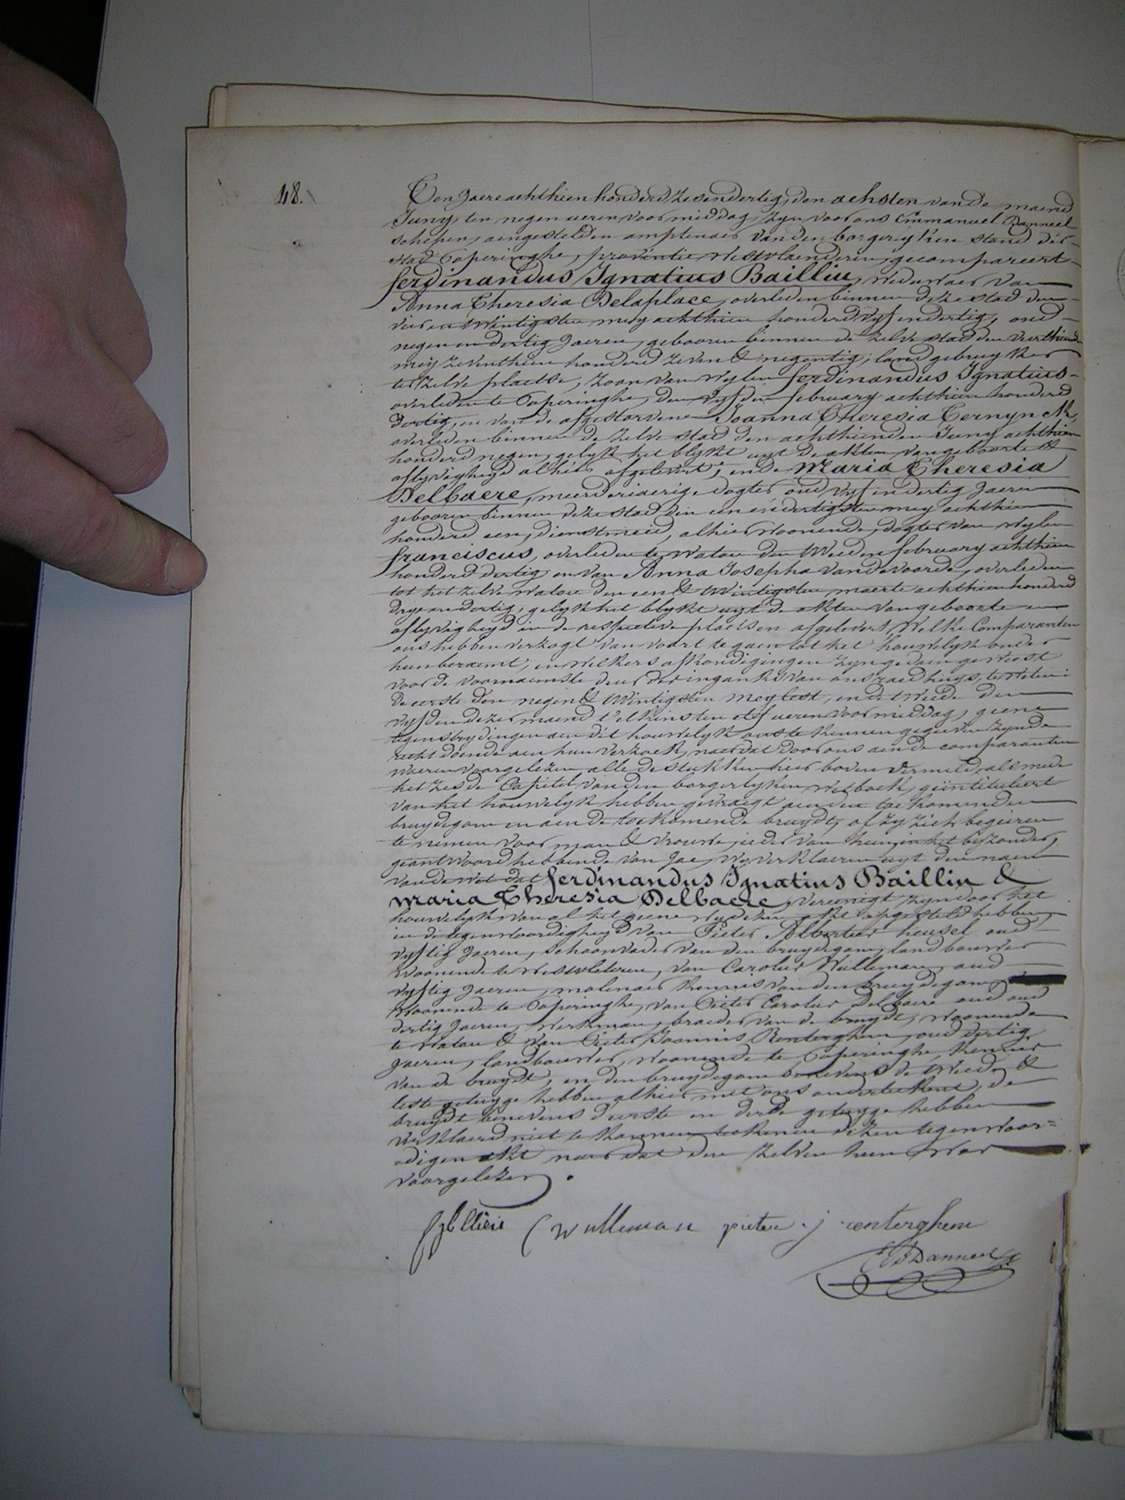 48.
Den Jaere achthien honderd zesendertig, den achsten van de maend
Juny, ten negen ueren voormiddag, zyn voor ons Emmanuel Danneel
schepen, aengestelden amptenaer van den borgerlyken stand der
stad Poperinghe, provintie westvlaenderen, gecompareert
ferdinandus Ignatius Bailliu, weduwaer van
Anna Theresia Delaplace, overleden binnen deze stad den
vier en twintigsten mey achthien honderd vyf en dertig, oud
negen en dertig Jaeren, gebooren binnen de zelve stad den veerthiende
mey zeventhien honderd zeven & negentig, landgebruyker
ter zelve plaetse, zoon van wylen ferdinandus Ignatius
overleden te Poperinghe, den vyfden february achthien honderd
dertig, en van de afgestorvene Joanna Theresia Ternynck,
overleden binnen de zelve stad den achthienden Juny achthien
honderd negen, gelyk het blykt uyt de akten van geboorte &
aflyvigheyd alhier afgelevert, en de Maria Theresia
Delbaere, meerderjaerige dogter oud vyf en dertig Jaeren
gebooren binnen deze stad den een en dertigsten mey achthien
honderd een, dienstmeid, alhier woonende, dogter van wylen
franciscus, overleden te Watou den tweeden february achthien
honderd dertig, en van Anna Josepha Vandevoorde, overleden
tot het zelve watou den een & twintigsten maerte achthien honderd
drye en dertig, gelyk het blykt uyt de akten van geboorte en
aflyvigheyd in de respective plaetsen afgelevert, Welke Comparanten
ons hebben verzogt van voort te gaen tot het houwelyk onder
hun beraemt, en welkers afkondigingen zyn gedaen geweest
voor de voornaemste deur der ingank van ons raedhuys, te weten:
de eerste den negen & twintigsten mey lest, en de tweede den
vyfden dezer maend telkensten elf ueren voormiddag, geene
tegenstrydingen aen dit houwelyk ons te kennen gegeven zynde
recht doende aen hun verzoek, naer dat door ons aen de comparanten
waren voorgelezen alle de stukken hier boven vermeld, als mede
het zesde Capitel van den borgerlyken wetboek, geintituleert
van het houwelyk hebben gevraegt aen den toekomenden
bruydegom en aen de toekomende bruydt, of zy zich begeeren
te nemen voor man & vrouw, ieder van hun in het byzonder,
geantwoord hebbende van Jae, Wy verklaeren uyt den naem
van de wet dat ferdinandus Ignatius Bailliu &
maria Theresia Delbaere, vereenigt zyn door het
houwelyk van al het geene wy dezen akte opgesteld hebben,
in de tegenwoordigheyd van Pieter Albertus heusel oud
vyftig Jaeren, schoonvader van den bruydegom, landbouwer
woonende te Westvleteren, van Carolus Wulleman, oud
vyftig Jaeren, molenaer kennis van den bruydegom,
woonende te Poperinghe, van Pieter Carolus Delbaere oud
dertig Jaeren, werkman, broeder van de bruydt, woonende
te Watou & van Pieter Joannis Renterghem, oud dertig
Jaeren, landbouwer, woonende te Poperinghe, kennis
van de bruydt, en den bruydegom benevens de tweede &
leste getuyge hebben alhier met ons onderteekent, de
bruydt benevens d'eerste en derde getuyge hebben
verklaerd niet te konnen teekenen dezen tegenwoor-
digen akt naer dat den zelven hun was
voorgelezen.
C Wulleman pieter j renterghem
E Danneel